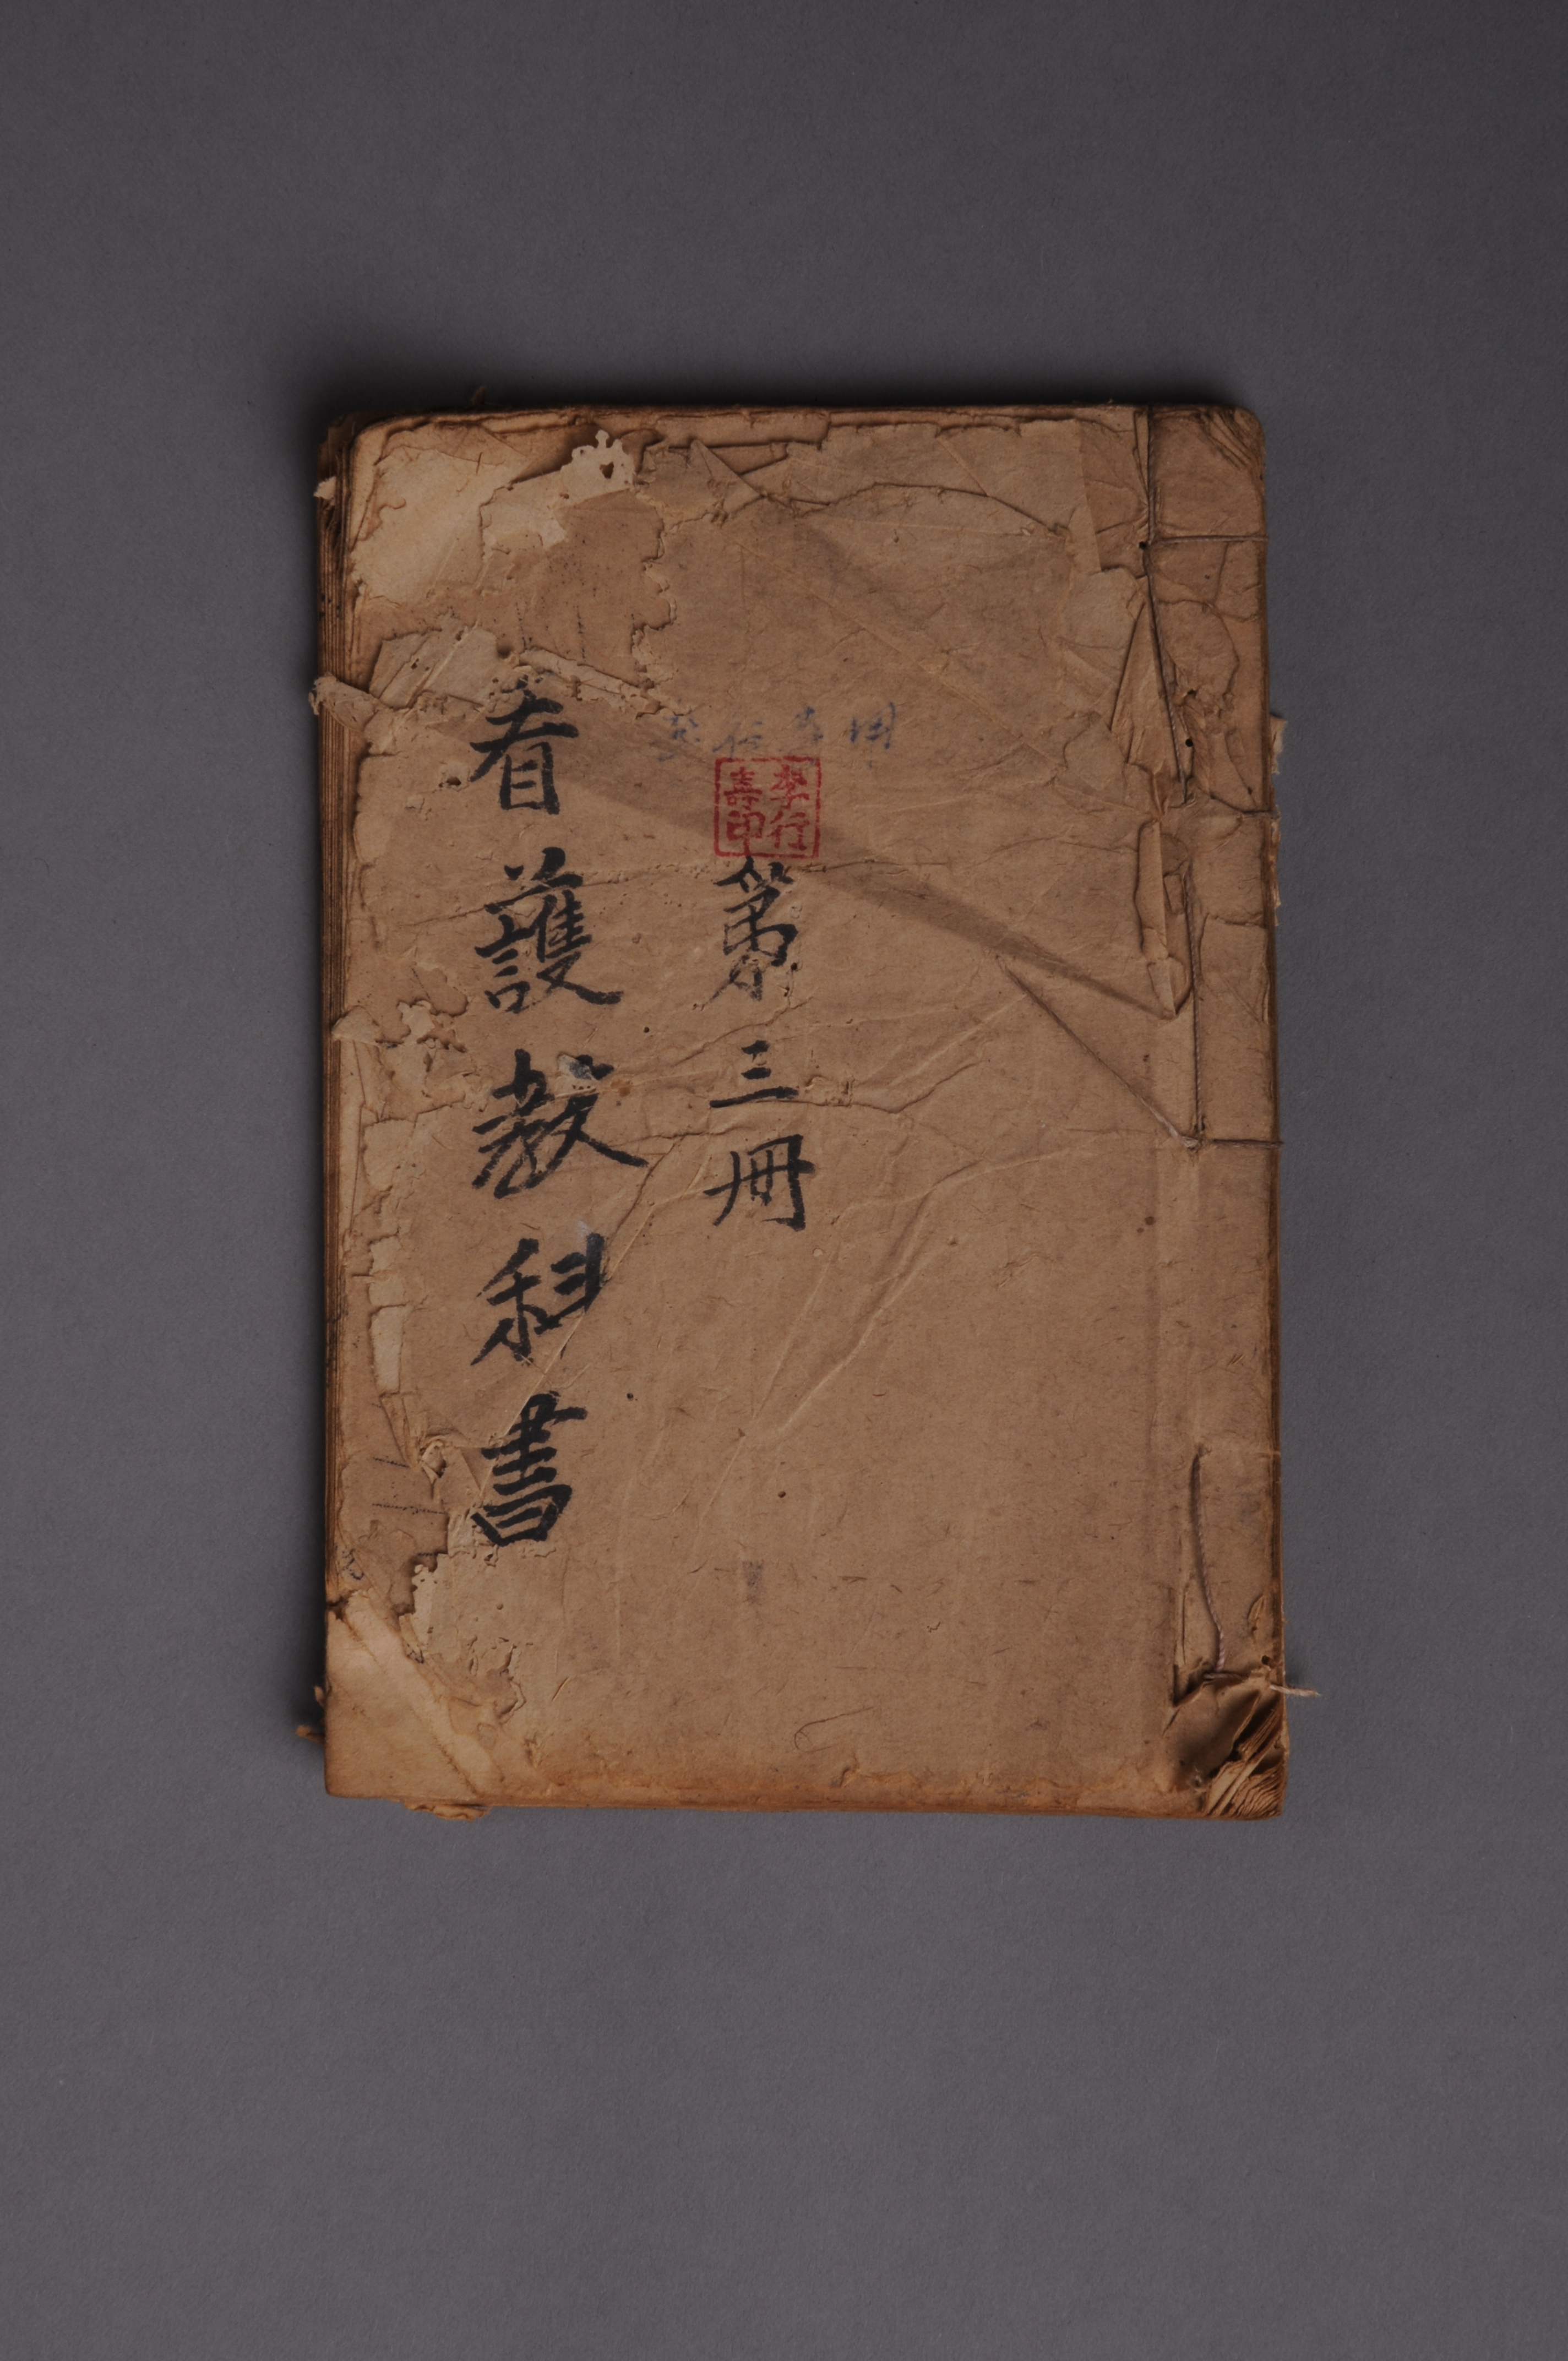 李行
喜印
第三冊
看護教科書